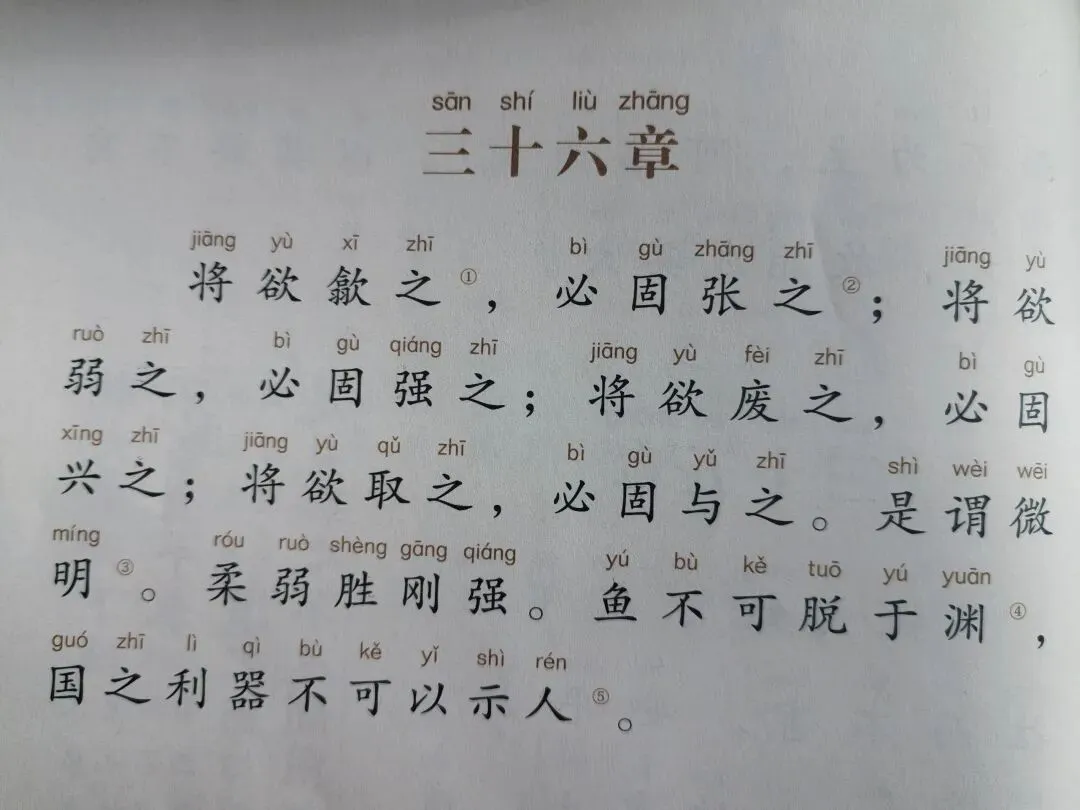 sān shí liù zhāng
三十六章
jiāng yù xī zhī bì gù zhāng zhī jiāng yù
将欲歙之①，必固张之②；将欲
ruò zhī bì gù qiáng zhī jiāng yù fèi zhī bì gù
弱之，必固强之；将欲废之，必固
xīng zhī jiāng yù qǔ zhī bì gù yǔ zhī shì wèi wēi
兴之；将欲取之，必固与之。是谓微
míng róu ruò shèng gāng qiáng yú bù kě tuō yú yuān
明③。柔弱胜刚强。鱼不可脱于渊④，
guó zhī lì qì bù kě yǐ shì rén
国之利器不可以示人⑤。